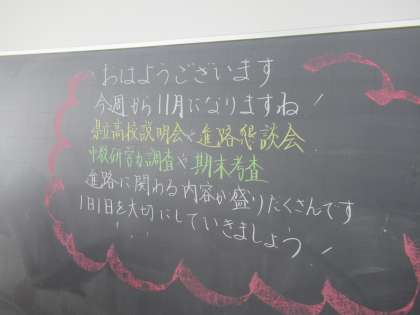 おはようございます
今週から11月になりますね!
県立高校説明会や進路懇談会
中教研学力調査や期末考査
進路に関わる内容が盛りたくさんです
1日1日を大切にしていきましょう!